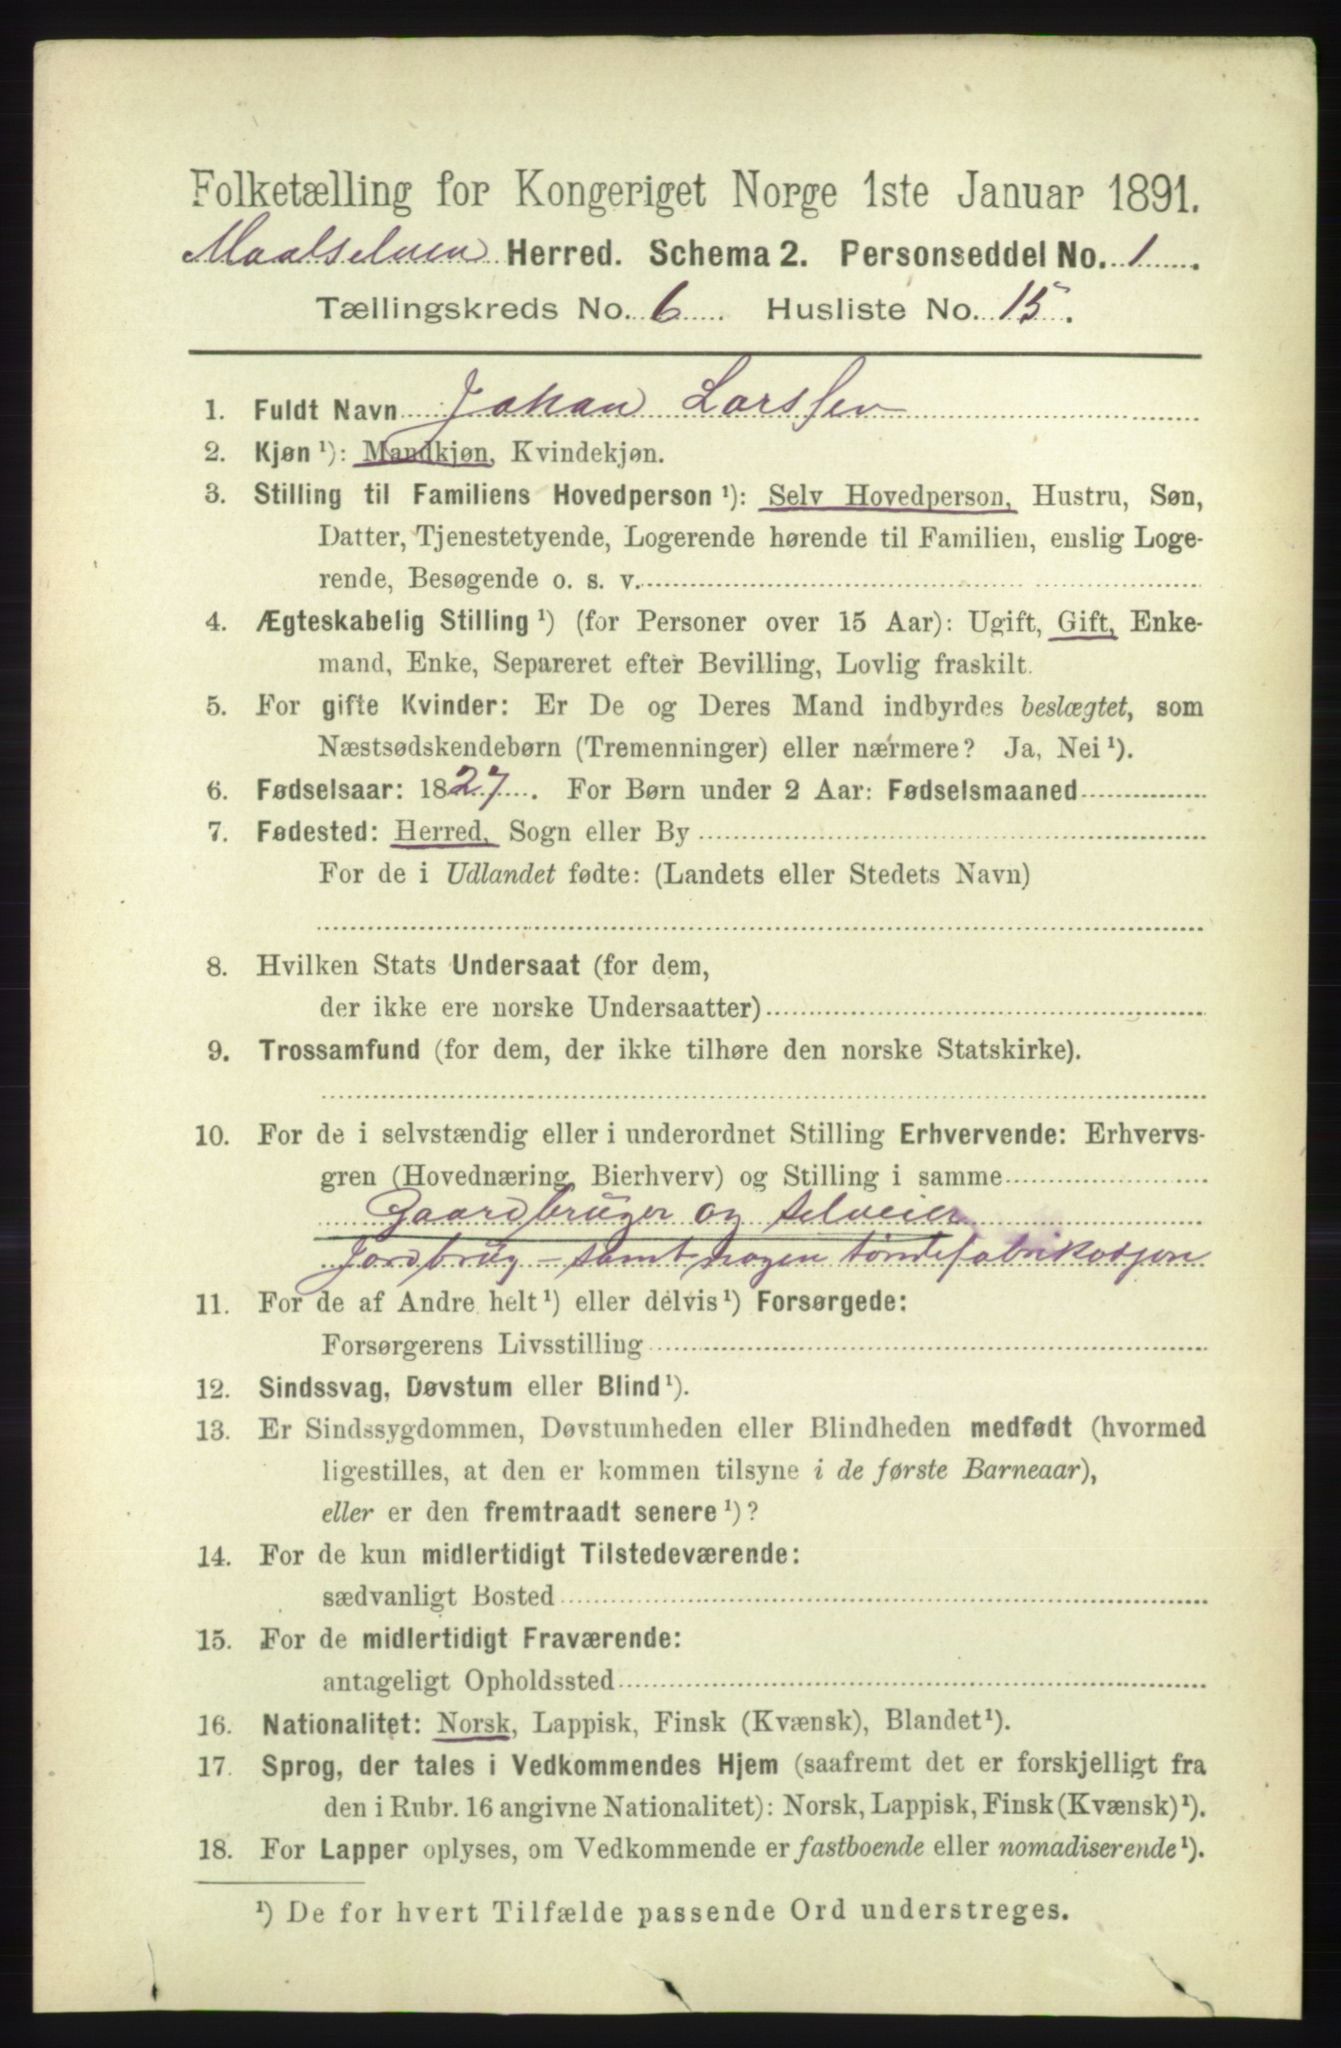 Folketælling for Kongeriget Norge 1ste Januar 1891.
Maalselven Herred. Schema 2. Personseddel No. 1
Tællingskreds No. 6 Husliste No. 15.
1. Fuldt Navn Johan Larssen
2. Kjøn ¹): Mandkjøn, Kvindekjøn.
3. Stilling til Familiens Hovedperson ¹): Selv Hovedperson, Hustru, Søn,
Datter, Tjenestetyende, Logerende hørende til Familien, enslig Loge-
rende, Besøgende o. s. v.
4. Ægteskabelig Stilling ¹) (for Personer over 15 Aar): Ugift, Gift, Enke-
mand, Enke, Separeret efter Bevilling, Lovlig fraskilt.
5. For gifte Kvinder: Er De og Deres Mand indbyrdes beslægtet, som
Næstsødskendebørn (Tremenninger) eller nærmere? Ja, Nei ¹).
6. Fødselsaar: 1827. For Børn under 2 Aar: Fødselsmaaned
7. Fødested: Herred, Sogn eller By
For de i Udlandet fødte: (Landets eller Stedets Navn)
8. Hvilken Stats Undersaat (for dem,
der ikke ere norske Undersaatter)
9. Trossamfund (for dem, der ikke tilhøre den norske Statskirke).
10. For de i selvstændig eller i underordnet Stilling Erhvervende: Erhvervs-
gren (Hovednæring, Bierhverv) og Stilling i samme
Gaardbruger og selveier
Jordbrug - samt nogen tøndefabrikasjon
11. For de af Andre helt ¹) eller delvis ¹) Forsørgede:
Forsørgerens Livsstilling
12. Sindssvag, Døvstum eller Blind ¹).
13. Er Sindssygdommen, Døvstumheden eller Blindheden medfødt (hvormed
ligestilles, at den er kommen tilsyne i de første Barneaar),
eller er den fremtraadt senere ¹)?
14. For de kun midlertidigt Tilstedeværende:
sædvanligt Bosted
15. For de midlertidigt Fraværende:
antageligt Opholdssted
16. Nationalitet: Norsk, Lappisk, Finsk (Kvænsk), Blandet ¹).
17. Sprog, der tales i Vedkommendes Hjem (saafremt det er forskjelligt fra
den i Rubr. 16 angivne Nationalitet): Norsk, Lappisk, Finsk (Kvænsk) ¹).
18. For Lapper oplyses, om Vedkommende er fastboende eller nomadiserende ¹).
¹) De for hvert Tilfælde passende Ord understreges.